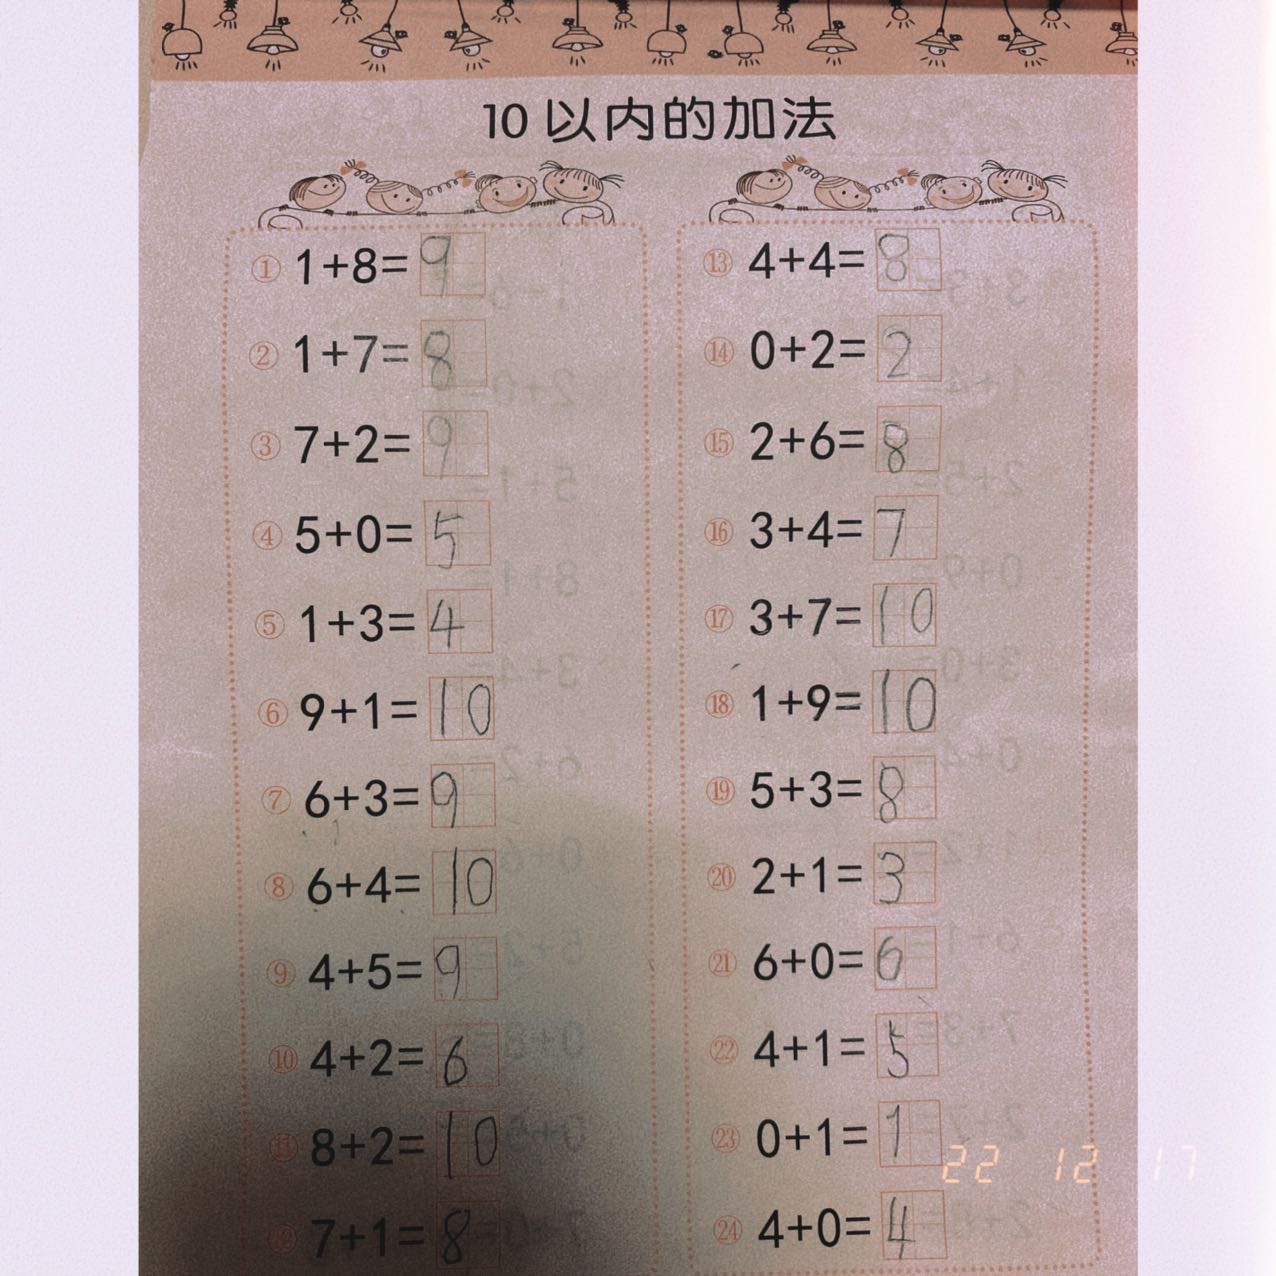 10以内的加法
① 1+8=9
② 1+7=8
③ 7+2=9
④ 5+0=5
⑤ 1+3=4
⑥ 9+1=10
⑦ 6+3=9
⑧ 6+4=10
⑨ 4+5=9
⑩ 4+2=6
⑪ 8+2=10
⑫ 7+1=8
⑬ 4+4=8
⑭ 0+2=2
⑮ 2+6=8
⑯ 3+4=7
⑰ 3+7=10
⑱ 1+9=10
⑲ 5+3=8
⑳ 2+1=3
㉑ 6+0=6
㉒ 4+1=5
㉓ 0+1=1
㉔ 4+0=4
22 12 17